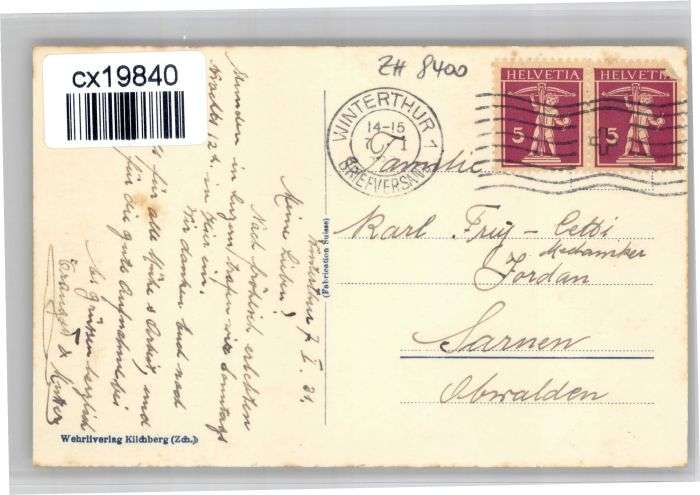 cx19840
ZH 8400
WINTERTHUR 1
14-15
BRIEFVERSAND
HELVETIA
5
HELVETIA
5
Familie
Karl Frey-Cetti
Mechaniker
Jordan
Sarnen
Obwalden
(Fabrication Suisse)
Winterthur 7. I. 31.
Meine Lieben!
Nach fröhlich erlebten
Stunden in Luzern trafen wir Sonntags
Nachts 12 h. in hier ein.
Wir danken Euch noch
für alle Mühe & Arbeit, und
für die gute Aufnahme bei
Grüssen herzlich
& Mutter
Wehrliverlag Kilchberg (Zch.)